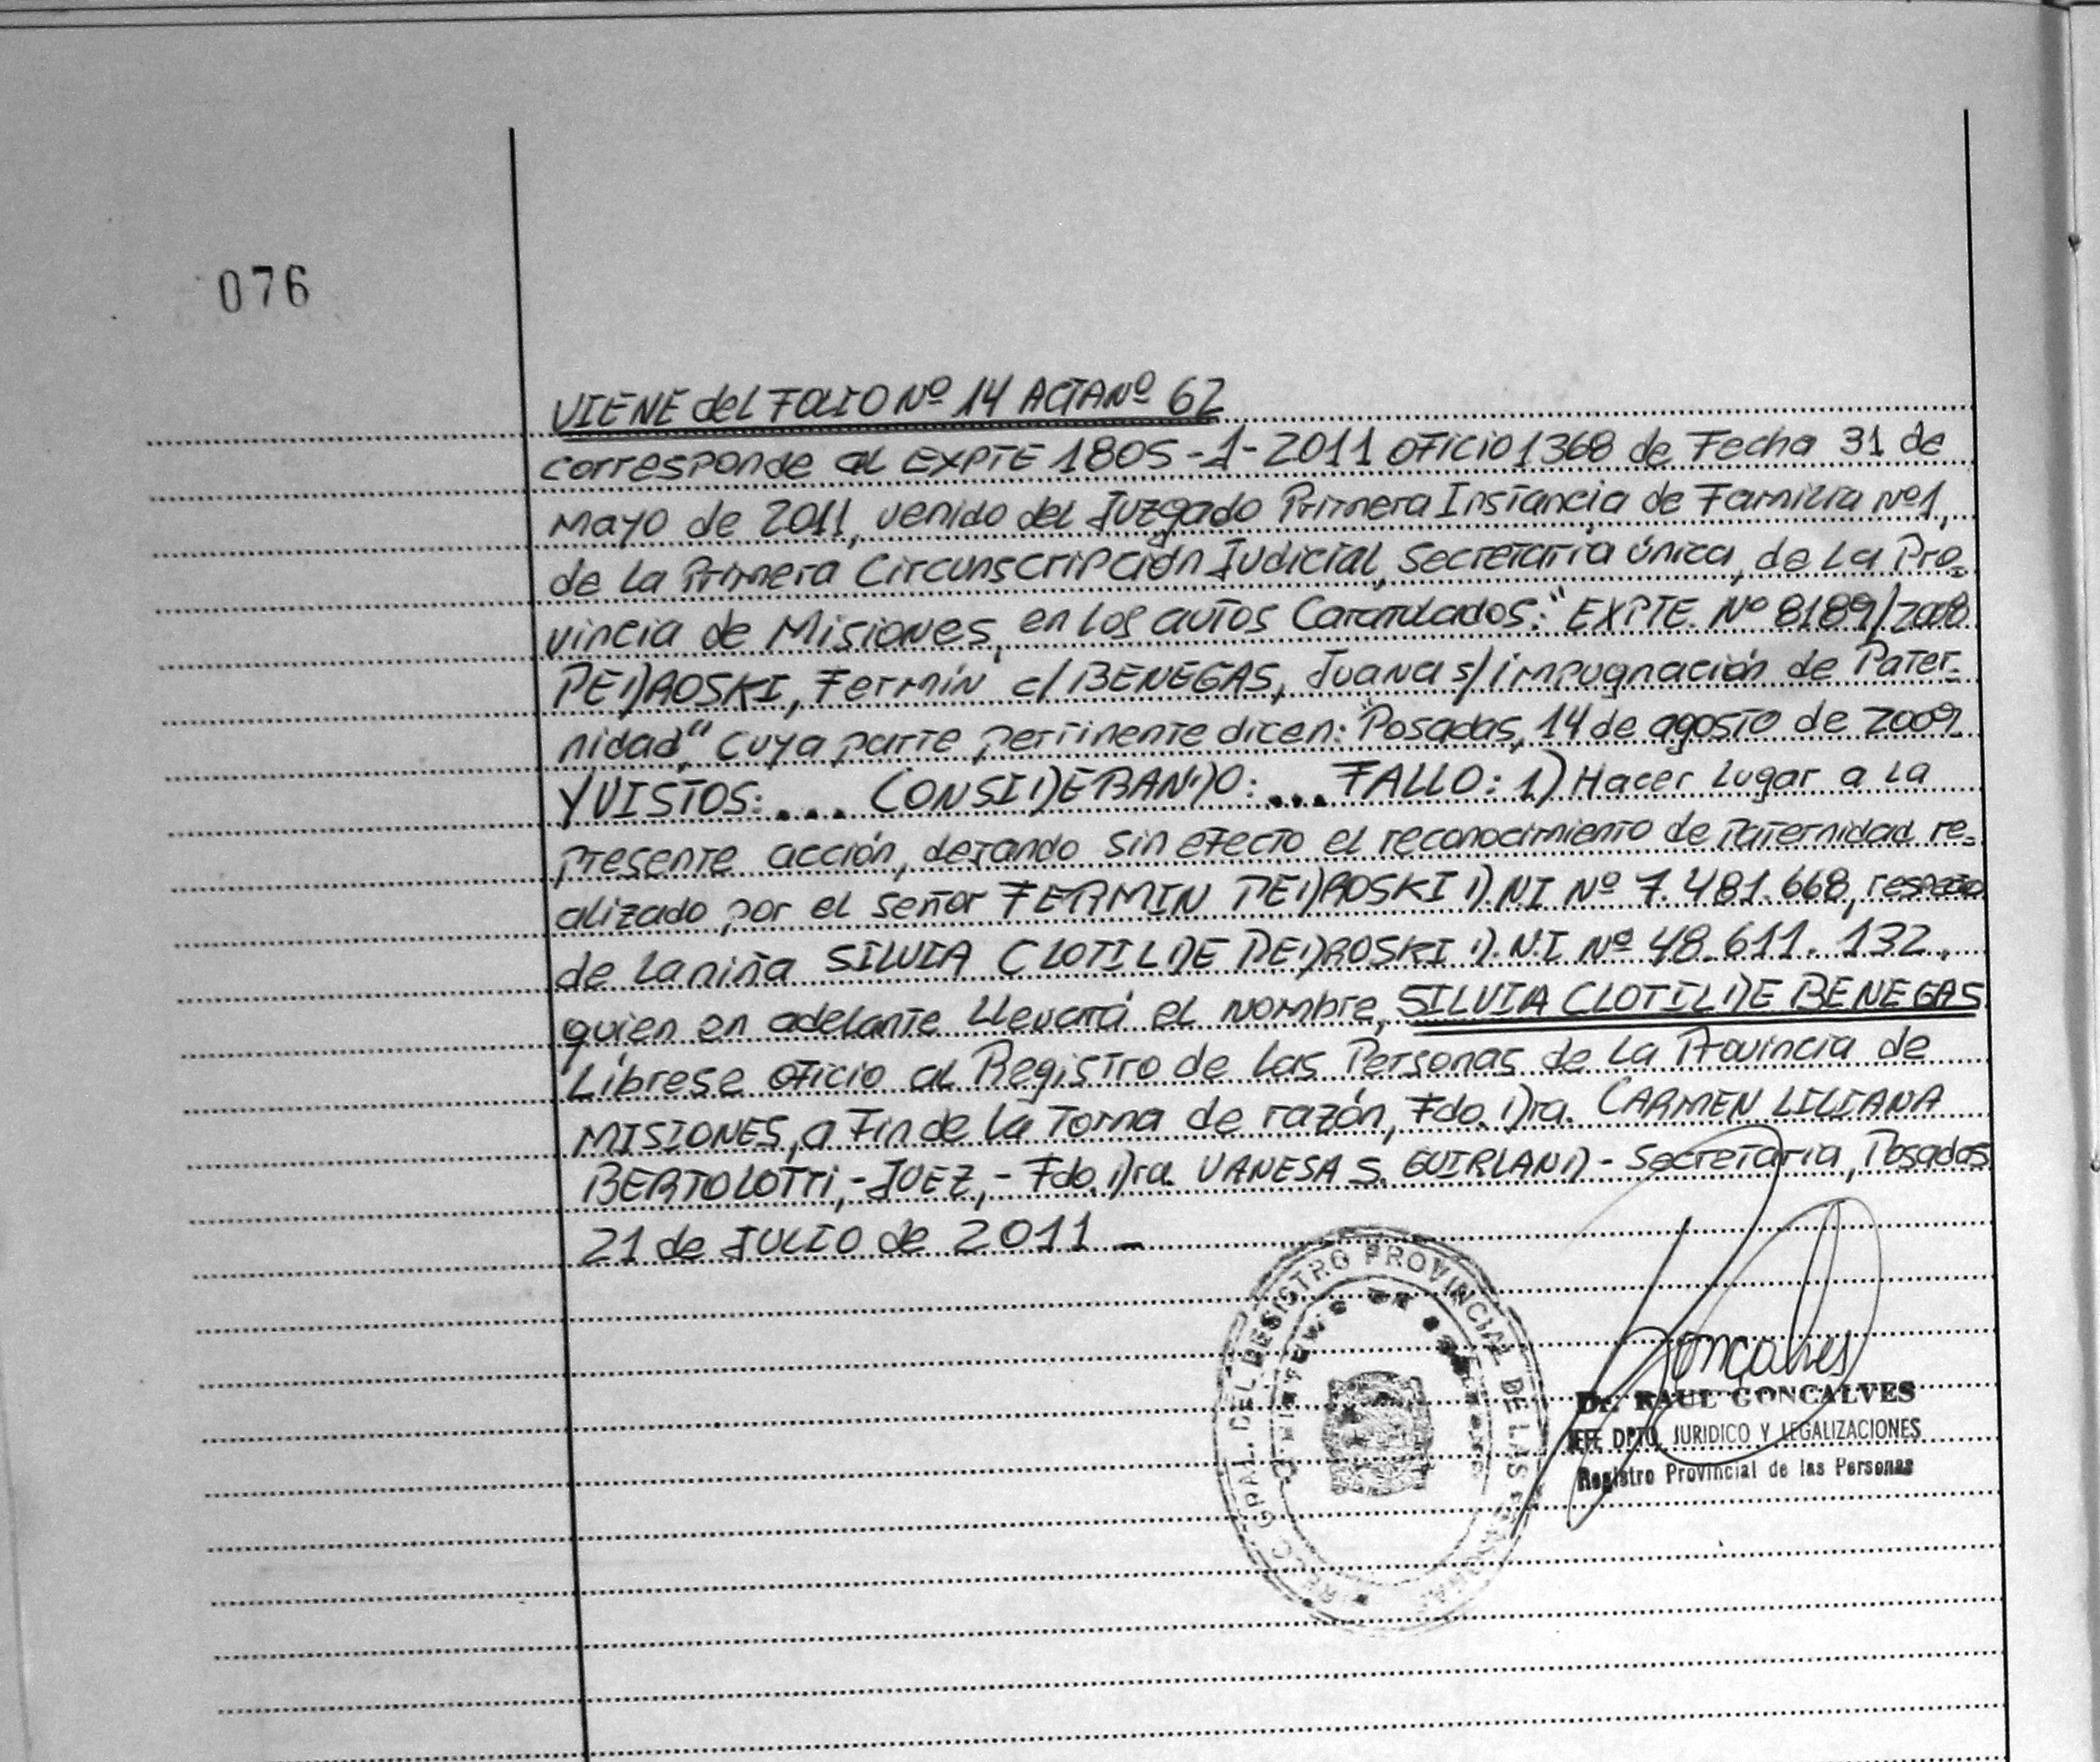 076
VIENE del FOLIO Nº 14 ACTA Nº 62
corresponde al EXPTE 1805-1-2011 OFICIO 1368 de Fecha 31 de
Mayo de 2011, venido del Juzgado Primera Instancia de Familia Nº 1,
de la Primera Circunscripción Judicial, Secretaría única, de la Pro-
vincia de Misiones, en los autos Caratulados: "EXPTE. Nº 8189/2008
PEDROSKI, Fermín c/ BENEGAS, Juana s/ impugnación de Pater-
nidad", Cuya parte pertinente dicen: "Posadas, 14 de agosto de 2009.
Y VISTOS: .... CONSIDERANDO: ... FALLO: 1) Hacer lugar a la
presente acción, dejando sin efecto el reconocimiento de paternidad re-
alizado por el señor FERMIN PEDROSKI D.NI Nº 7.481.668, respecto
de la niña SILVIA CLOTILDE PEDROSKI D.N.I Nº 48.611.132,
quien en adelante llevará el nombre, SILVIA CLOTILDE BENEGAS
Líbrese oficio al Registro de las Personas de la Provincia de
MISIONES, a Fin de la Toma de razón, Fdo. Dra. CARMEN LILIANA
BERTOLOTTI,-JUEZ,- Fdo. Dra. VANESA S. GUIRLAND - Secretaria, Posadas
21 de JULIO de 2011 -
GRAL. DEL REGISTRO PROVINCIAL DE LAS PERSONAS
Goncalves
Dr. RAUL GONCALVES
JEFE DPTO. JURIDICO Y LEGALIZACIONES
Registro Provincial de las Personas